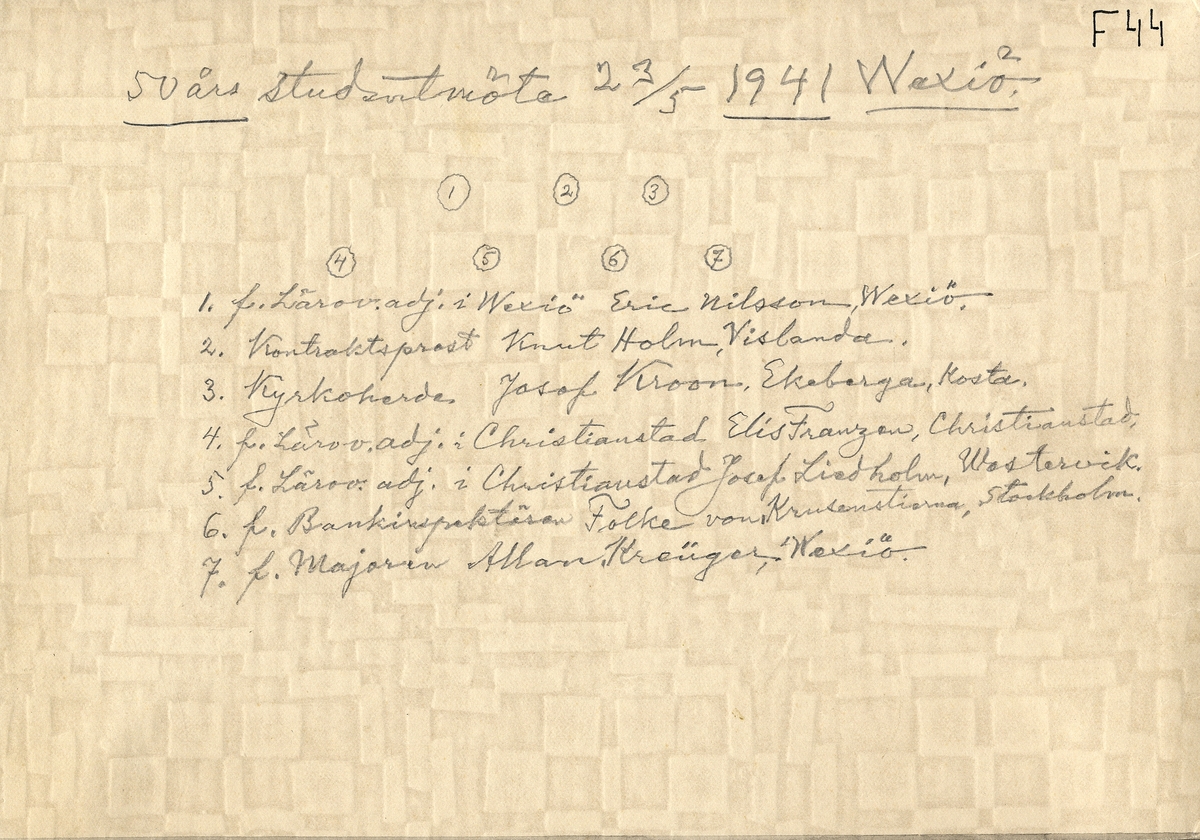 F44
50 års studentmöte 23/5 1941 Wexiö.
1 2 3
4 5 6 7
1. f. Lärov. adj. i Wexiö Eric Nilsson, Wexiö.
2. Kontraktsprost Knut Holm, Vislanda.
3. Kyrkoherde Josef Kroon, Ekeberga, Kosta.
4. f. Lärov. adj. i Christianstad Elis Franzen, Christianstad,
5. f. Lärov. adj. i Christianstad Josef Liedholm, Westervik.
6. f. Bankinspektören Folke von Krusenstierna, Stockholm.
7. f. Majoren Allan Kreüger, Wexiö.